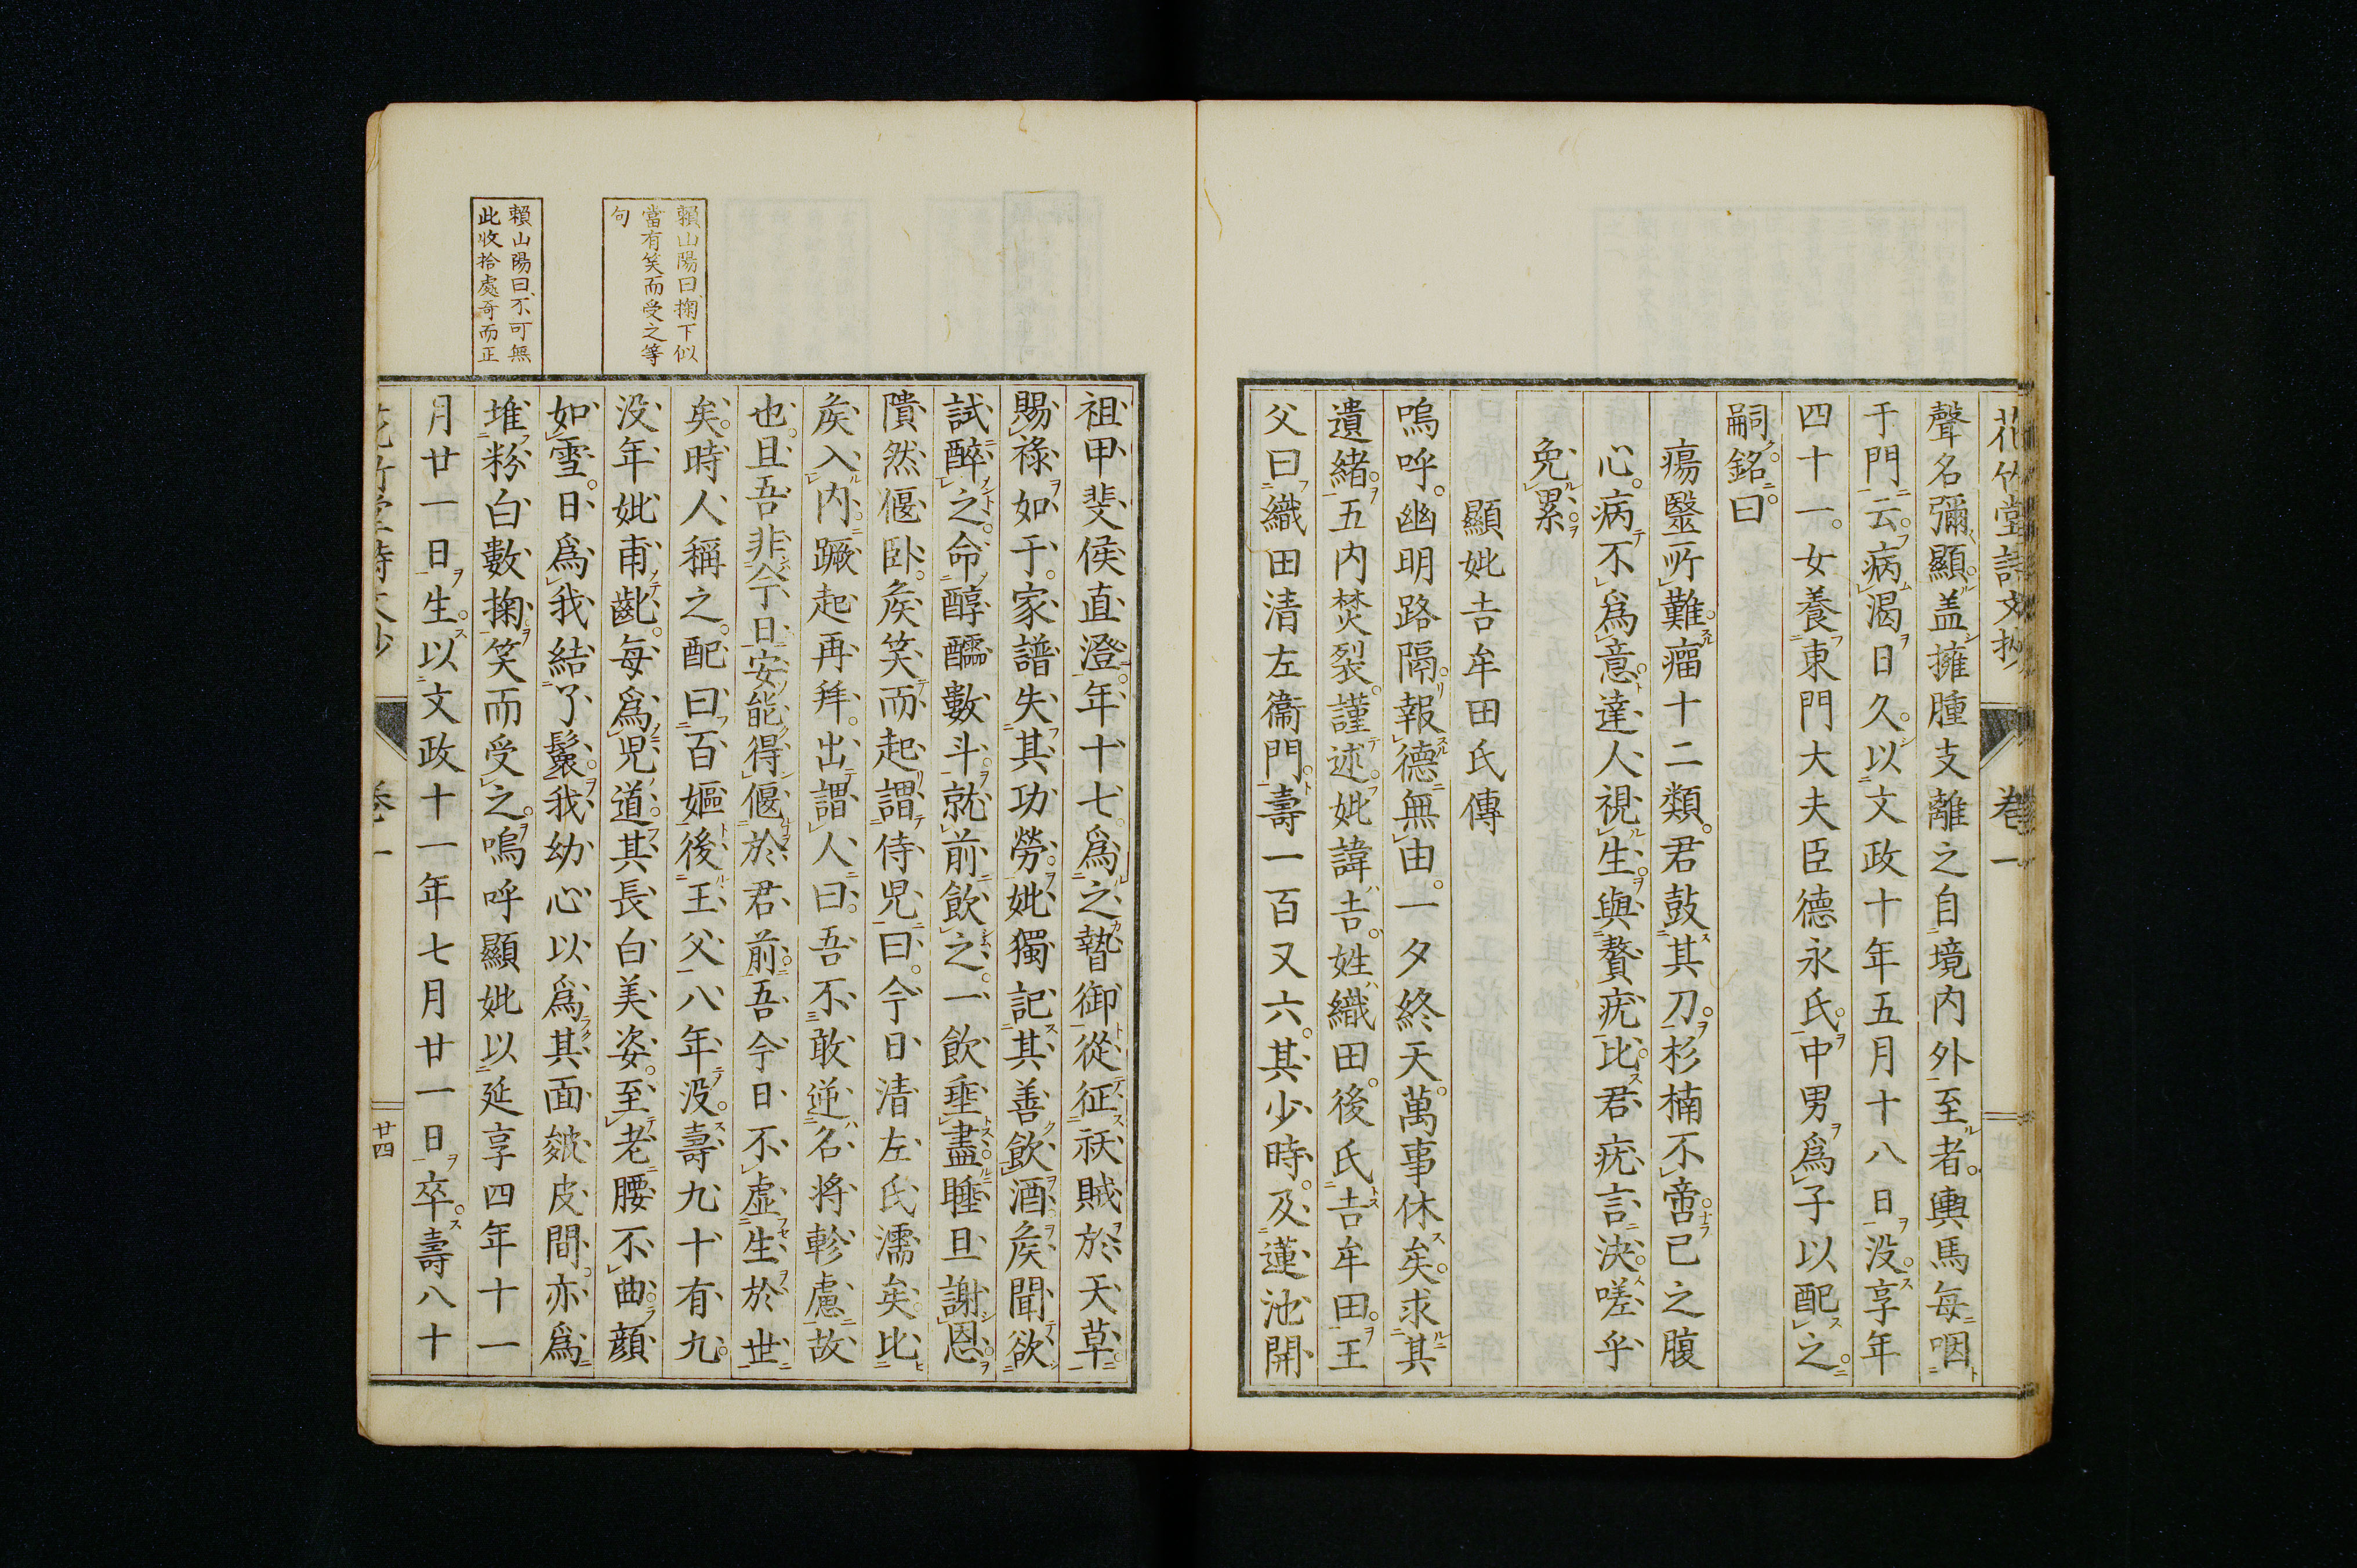 花竹堂詩文抄 卷一
聲名彌顯盖擁腫支離之自境内外至者輿馬每咽
于門云病渴日久以文政十年五月十八日没享年
四十一女養東門大夫臣德永氏中男爲子以配之
嗣銘曰
瘍毉所難瘤十二類君鼓其刀杉楠不啻己之腹
心病不爲意達人視生與贅疣比君疣言決嗟乎
免累
顯妣吉牟田氏傳
嗚呼幽明路隔報德無由一夕終天萬事休矣求其
遺緒五内焚裂謹述妣諱吉姓織田後氏吉牟田王
父曰織田清左衞門壽一百又六其少時及蓮池開
賴山陽曰掬下似
當有笑而受之等
句
賴山陽曰不可無
此收拾處奇而正
祖甲斐侯直澄年十七爲之贄御從征祆賊於天草
賜祿如于家譜失其功勞妣獨記其善飲酒矦聞欲
試醉之命醇醹數斗就前飲之一飲垂盡睡旦謝恩
隤然偃卧矦笑而起謂侍兒曰今日清左氏濡矣比
矦入内蹶起再拜出謂人曰吾不敢逆名将軫慮故
也且吾非今日安能得偃於君前吾今日不虚生於世
矣時人稱之配曰百嫗後王父八年没壽九十有九
没年妣甫齔每爲兒道其長白美姿至老腰不曲顔
如雪日爲我結了鬟我幼心以爲其面皴皮間亦爲
堆粉白數掬笑而受之嗚呼顯妣以延享四年十一
月廿一日生以文政十一年七月廿一日卒壽八十
卷一 廿四